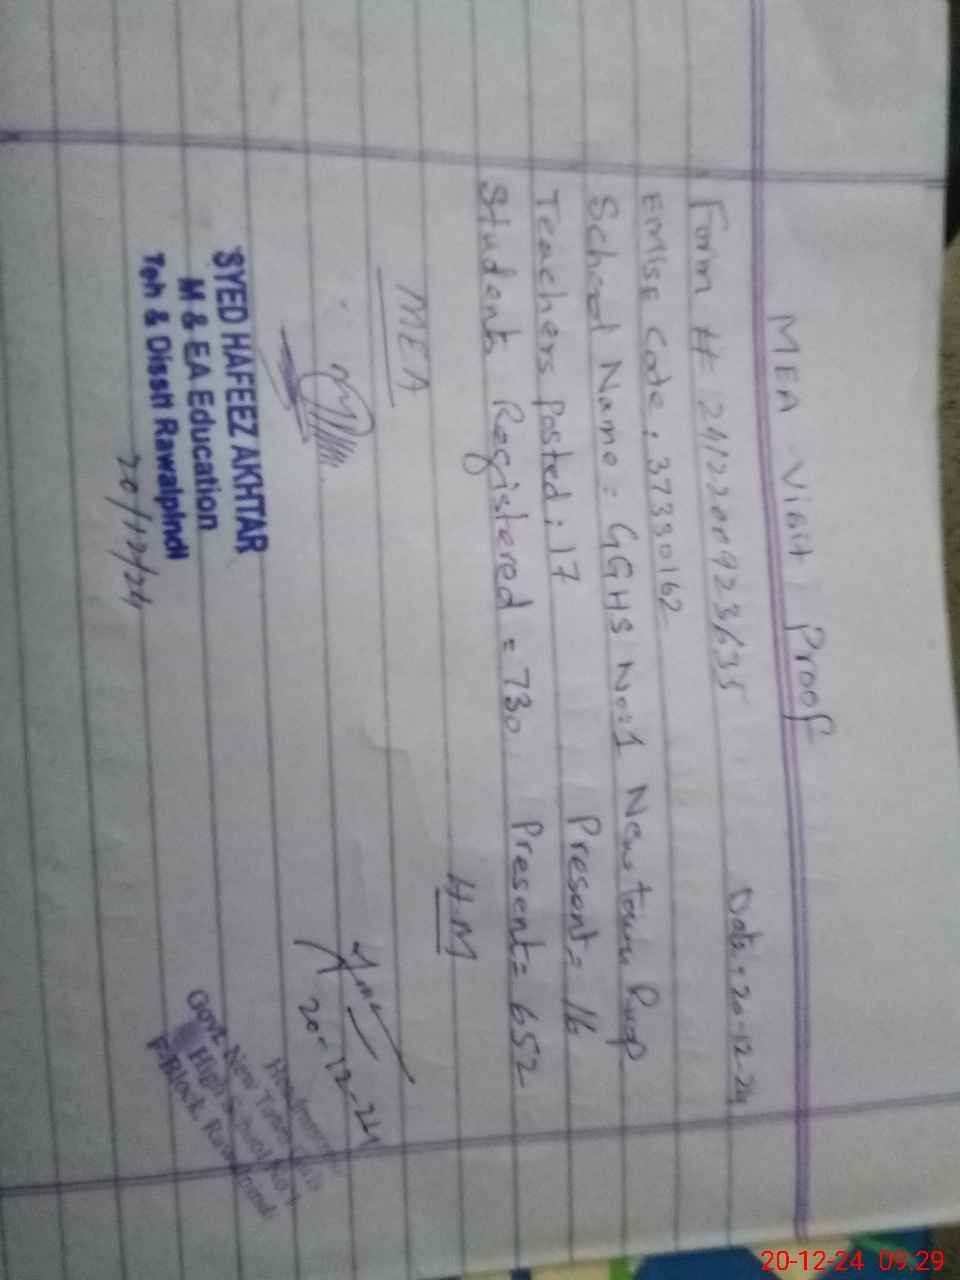 MEA Visit Proof
Date = 20-12-24
Form # 2412200923635
EMISE Code: 37330162
School Name = GGHS No:1 New town Rwp
Teachers posted: 17 Present = 16
Students Registered = 730 Present = 652
MEA H.M
20-12-24
SYED HAFEEZ AKHTAR
M & EA Education
Teh & Disstt Rawalpindi
20/12/24
Govt. New Town
High School No 1
F-Block
20-12-24 09.29